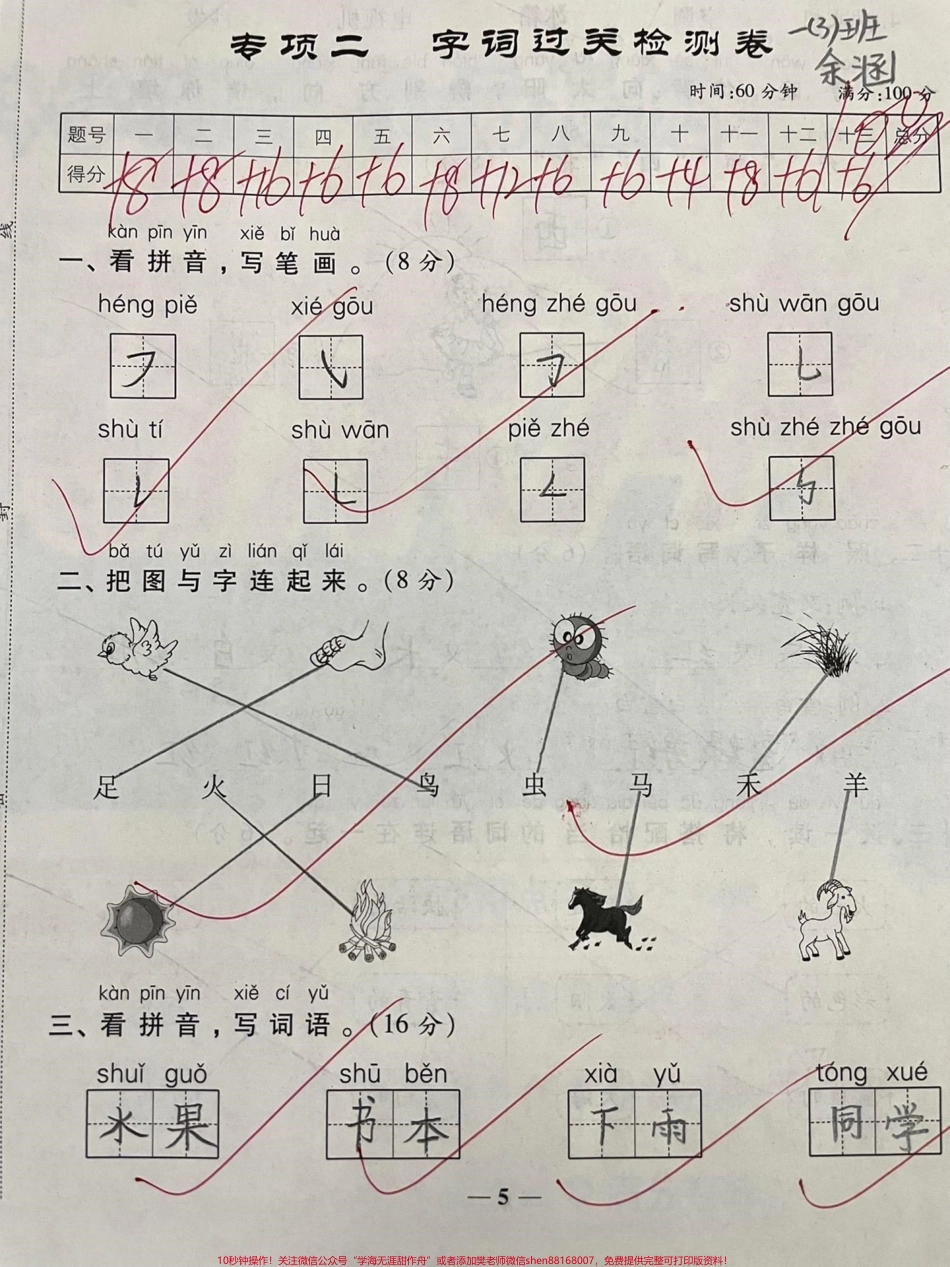 专项二 字词过关检测卷
一(3)班
余涵
时间:60分钟 满分:100分
题号 一 二 三 四 五 六 七 八 九 十 十一 十二 十三 总分
得分 +8 +8 +16 +6 +6 +8 +12 +6 +6 +4 +8 +6 +6
kàn pīn yīn xiě bǐ huà
一、看拼音,写笔画。(8分)
héng piě xié gōu héng zhé gōu shù wān gōu
㇇ ㇂ ㇆ ㇟
shù tí shù wān piě zhé shù zhé zhé gōu
㇙ ㇄ ㇜ ㇉
bǎ tú yǔ zì lián qǐ lái
二、把图与字连起来。(8分)
足 火 日 鸟 虫 马 禾 羊
kàn pīn yīn xiě cí yǔ
三、看拼音,写词语。(16分)
shuǐ guǒ shū běn xià yǔ tóng xué
水果 书本 下雨 同学
— 5 —
线
封
10秒钟操作!关注微信公众号“学海无涯甜作舟”或者添加樊老师微信shen88168007,免费提供完整可打印版资料!